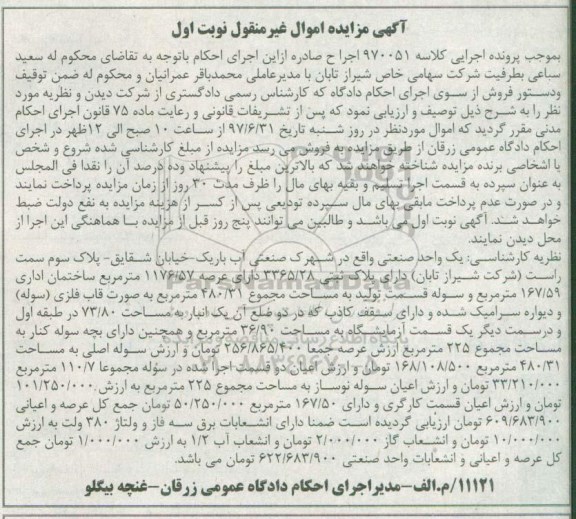 آگهی مزایده اموال غیرمنقول نوبت اول
بموجب پرونده اجرایی کلاسه ۹۷۰۰۵۱ اجرا ح صادره ازاین اجرای احکام باتوجه به تقاضای محکوم له سعید
سباعی بطرفیت شرکت سهامی خاص شیراز تابان با مدیرعاملی محمدباقر عمرانیان و محکوم له ضمن توقیف
ودستور فروش از سوی اجرای احکام دادگاه که کارشناس رسمی دادگستری از شرکت دیدن و نظریه مورد
نظر را به شرح ذیل توصیف و ارزیابی نمود که پس از تشریفات قانونی و رعایت ماده ۷۵ قانون اجرای احکام
مدنی مقرر گردید که اموال موردنظر در روز شنبه تاریخ ۹۷/۶/۳۱ از ساعت ۱۰ صبح الی ۱۲ظهر در اجرای
احکام دادگاه عمومی زرقان از طریق مزایده به فروش می رسد مزایده از مبلغ کارشناسی شده شروع و شخص
یا اشخاصی برنده مزایده شناخته خواهند شد که بالاترین مبلغ را پیشنهاد وده درصد آن را نقدا فی المجلس
به عنوان سپرده به قسمت اجرا تسلیم و بقیه بهای مال را ظرف مدت ۳۰ روز از زمان مزایده پرداخت نمایند
و در صورت عدم پرداخت مابقی بهای مال سپرده تودیعی پس از کسر از هزینه مزایده به نفع دولت ضبط
خواهد شد. آگهی نوبت اول می باشد و طالبین می توانند پنج روز قبل از مزایده با هماهنگی این اجرا از
محل دیدن نمایند.
نظریه کارشناسی: یک واحد صنعتی واقع در شهرک صنعتی آب باریک-خیابان شقایق- پلاک سوم سمت
راست (شرکت شیراز تابان) دارای پلاک ثبتی ۳۳۶۵/۲۸ دارای عرصه ۱۱۷۶/۵۷ مترمربع ساختمان اداری
۱۶۷/۵۹ مترمربع و سوله قسمت تولید به مساحت مجموع ۴۸۰/۳۱ مترمربع به صورت قاب فلزی (سوله)
و دیواره سرامیک شده و دارای سقف کاذب که در دو ضلع آن یک انبار به مساحت ۷۳/۸۰ در طبقه اول
و درسمت دیگر یک قسمت آزمایشگاه به مساحت ۳۶/۹۰ مترمربع و همچنین دارای بچه سوله کنار به
مساحت مجموع ۲۲۵ مترمربع ارزش عرصه جمعا ۲۵۶/۸۶۵/۴۰۰ تومان و ارزش سوله اصلی به مساحت
۴۸۰/۳۱ مترمربع ۱۶۸/۱۰۸/۵۰۰ تومان و ارزش اعیان دو قسمت اجرا شده در سوله مجموعا ۱۱۰/۷ مترمربع
۳۳/۲۱۰/۰۰۰ تومان و ارزش اعیان سوله نوساز به مساحت مجموع ۲۲۵ مترمربع به ارزش ۱۰۱/۲۵۰/۰۰۰
تومان و ارزش اعیان قسمت کارگری و دارای ۱۶۷/۵۰ مترمربع ۵۰/۲۵۰/۰۰۰ تومان جمع کل عرصه و اعیانی
۶۰۹/۶۸۳/۹۰۰ تومان ارزیابی گردیده است ضمنا دارای انشعابات برق سه فاز و ولتاژ ۳۸۰ ولت به ارزش
۱۰/۰۰۰/۰۰۰ تومان و انشعاب گاز ۲/۰۰۰/۰۰۰ تومان و انشعاب آب ۱/۲ به ارزش ۱/۰۰۰/۰۰۰ تومان جمع
کل عرصه و اعیانی و انشعابات واحد صنعتی ۶۲۲/۶۸۳/۹۰۰ تومان می باشد.
۱۱۱۲۱/م.الف-مدیراجرای احکام دادگاه عمومی زرقان-غنچه بیگلو